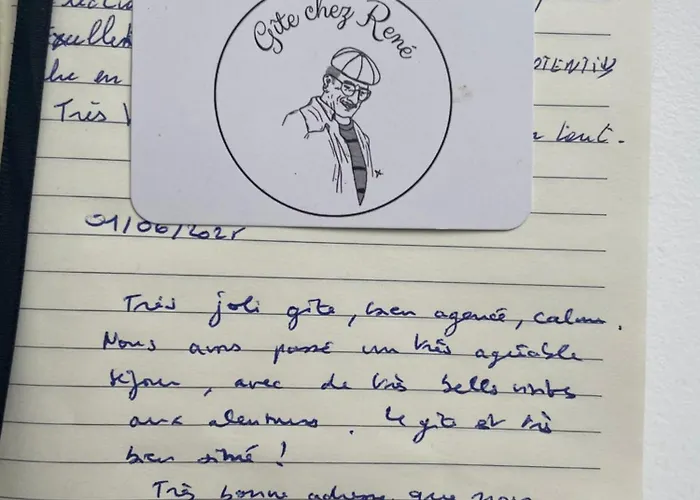 Gîte chez René
he en
Très
tout.
01/06/2025
Très joli gîte, bien agencé, calme.
Nous avons passé un très agréable
séjour, avec de très belles visites
aux alentours. Le gîte est très
bien situé !
Très bonne adresse que nous